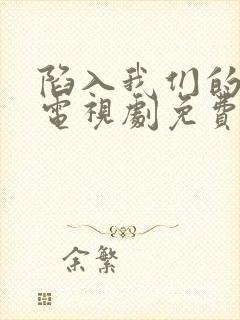 陷入我们的
電視劇免費
余繁